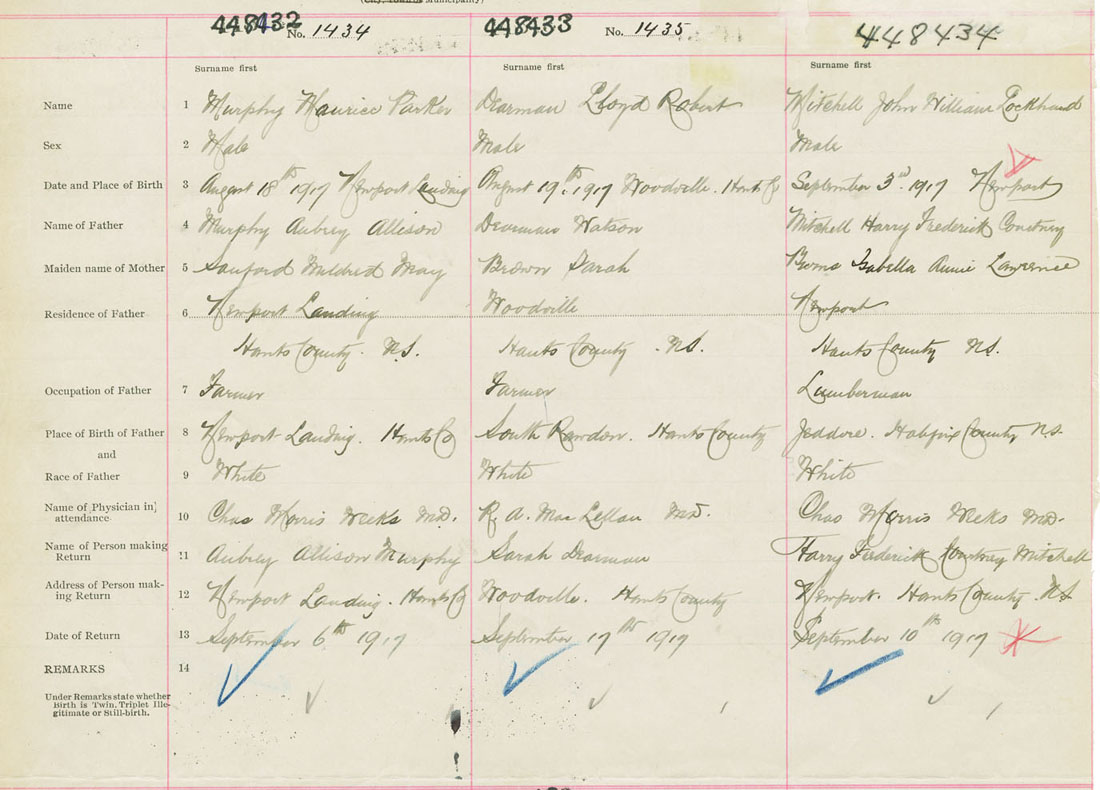 (City, Town or Municipality)
448432 No. 1434 448433 No. 1435 448434
Surname first Surname first Surname first
Name 1 Murphy Maurice Parker Dearman Lloyd Robert Mitchell John William Lockhand
Sex 2 Male Male Male
Date and Place of Birth 3 August 18th 1917 Newport Landing August 19th. 1917 Woodville. Hants Co September 3rd 1917 Newport
Name of Father 4 Murphy Aubrey Allison Dearman Watson Mitchell Harry Frederick Courtney
Maiden name of Mother 5 Sanford Mildred May Brown Sarah Isabella Annie Lawrence
Residence of Father 6 Newport Landing Woodville Newport
Hants County. N.S. Hants County. N.S. Hants County N.S.
Occupation of Father 7 Farmer Farmer Lumberman
Place of Birth of Father 8 Newport Landing. Hants Co South Rawdon. Hants County Jeddore. Halifax County N.S.
and
Race of Father 9 White White White
Name of Physician in
attendance 10 Chas Morris Weeks M.D. R. A. MacLellan M.D. Chas Morris Weeks M.D.
Name of Person making
Return 11 Aubrey Allison Murphy Sarah Dearman Harry Frederick Courtney Mitchell
Address of Person mak-
ing Return 12 Newport Landing. Hants Co Woodville. Hants County Newport. Hants County. N.S
Date of Return 13 September 6th 1917 September 17th 1917 September 10th 1917
REMARKS 14
Under Remarks state whether
Birth is Twin, Triplet Ille-
gitimate or Still-birth.